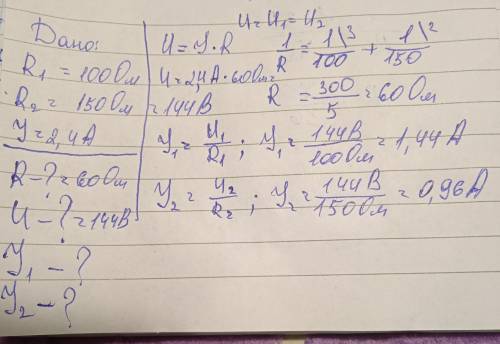 Дано:
R₁ = 100 Ом
R₂ = 150 Ом
У = 2,4А
R - ? = 60 Ом
U - ? = 144В
У₁ - ?
У₂ - ?
U = U₁ = U₂
U = У · R
1/R = 1\3/100 + 1\2/150
U = 2,4А · 60 Ом =
= 144В
R = 300/5 = 60 Ом
У₁ = U₁/R₁ ; У₁ = 144В/100Ом = 1,44 А
У₂ = U₂/R₂ ; У₂ = 144В/150Ом = 0,96А